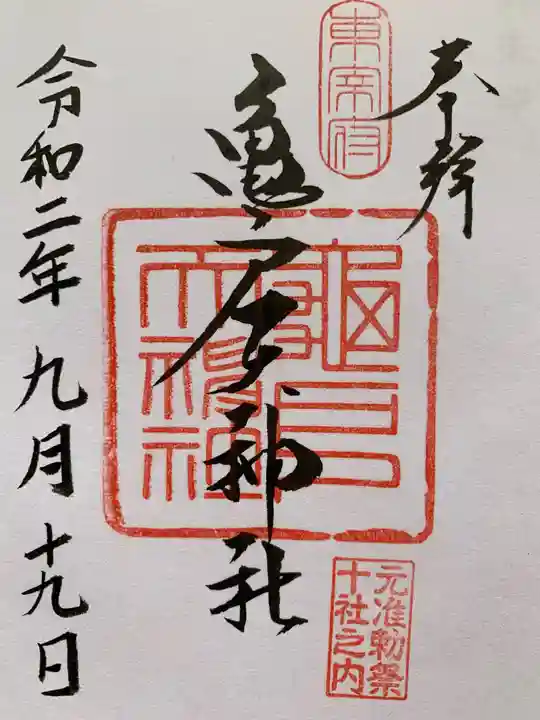 奉拝
東宰府
亀戸天神社
元准勅祭
十社之内
令和二年九月十九日